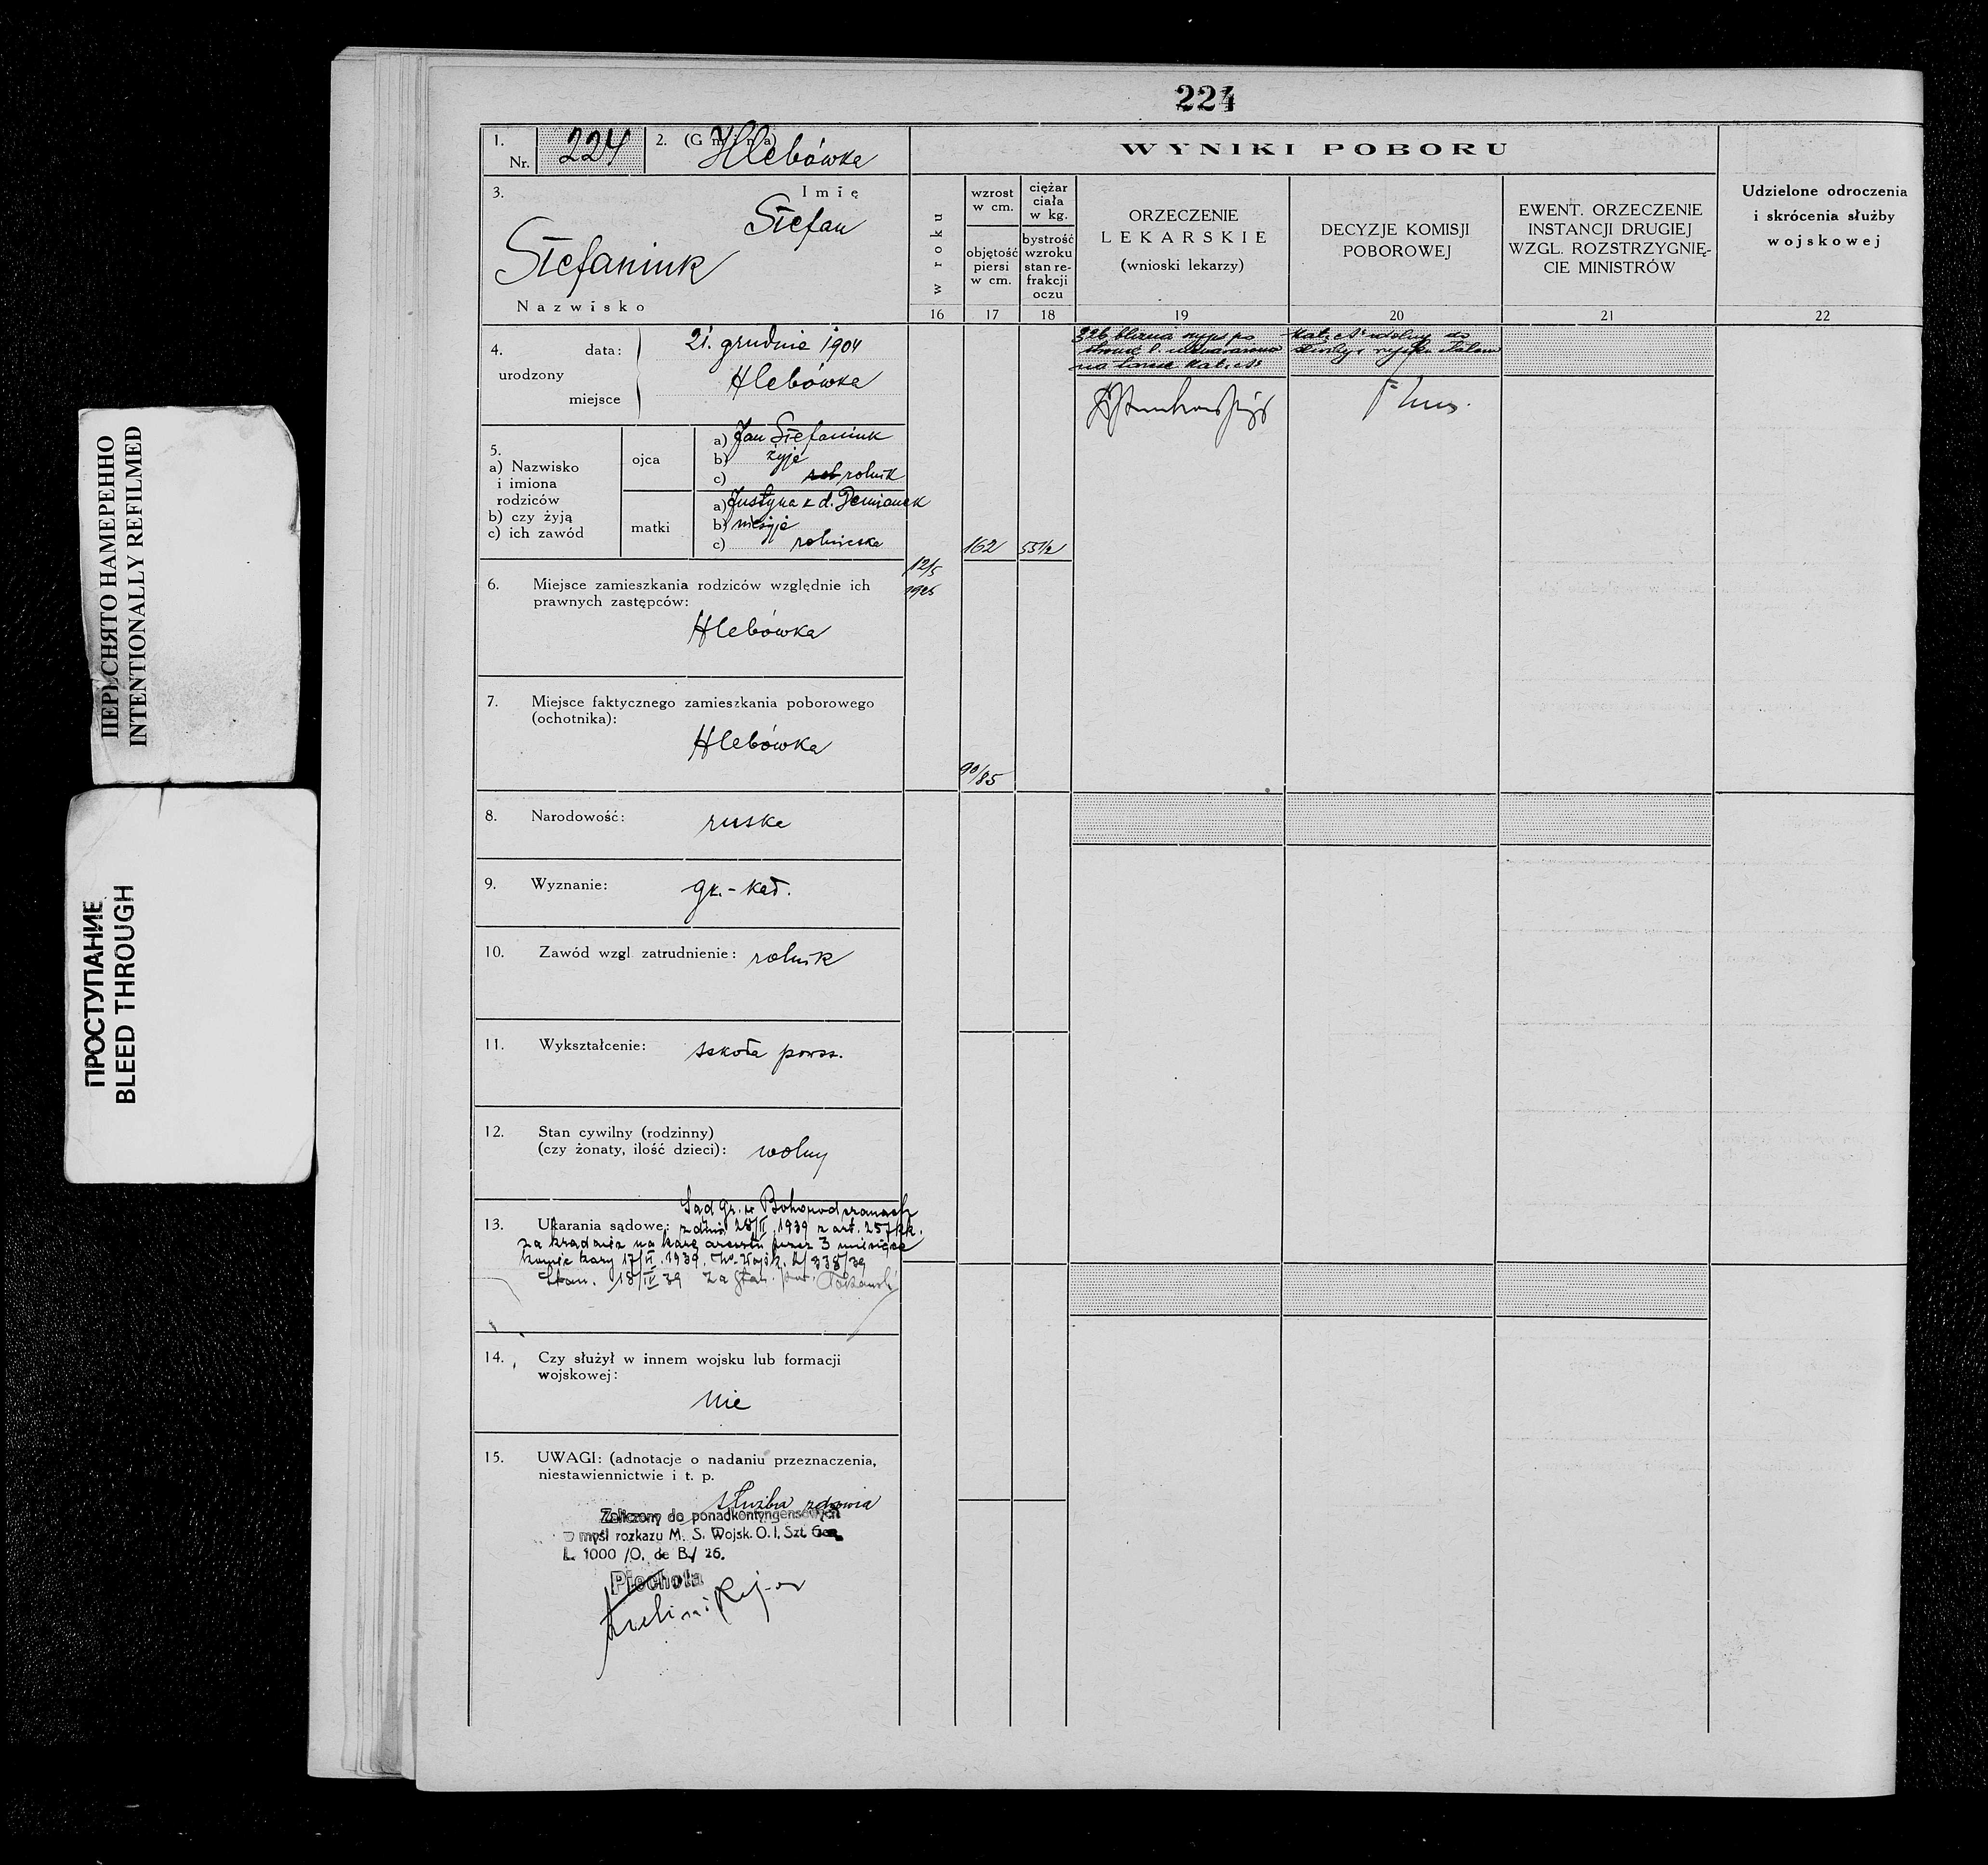 ПЕРЕСНЯТО НАМЕРЕННО
INTENTIONALLY REFILMED
ПРОСТУПАНИЕ
BLEED THROUGH
224
1.
Nr. 224
2. (Gmina) Hlebówka
3.
Imię
Stefan
Stefaniuk
Nazwisko
4.
urodzony
data: 21. grudnia 1904
miejsce Hlebówka
5.
a) Nazwisko
i imiona
rodziców
b) czy żyją
c) ich zawód
ojca
a) Jan Stefaniuk
b) żyje
c) rolnik
matki
a) Justyna z d. Demianek
b) nieżyje
c) rolniczka
6. Miejsce zamieszkania rodziców względnie ich
prawnych zastępców:
Hlebówka
7. Miejsce faktycznego zamieszkania poborowego
(ochotnika):
Hlebówka
8. Narodowość: ruska
9. Wyznanie: gr.-kat.
10. Zawód wzgl. zatrudnienie: rolnik
11. Wykształcenie: szkoła powsz.
12. Stan cywilny (rodzinny)
(czy żonaty, ilość dzieci): wolny
Sąd Gr. w Bohorodczanach
13. Ukarania sądowe: z dnia 28/II 1939 z art. 257 kk.
za kradzież na karę aresztu przez 3 miesiące
koniec kary 17/VI. 1939. 338/39
18/IV 39
14. Czy służył w innem wojsku lub formacji
wojskowej:
Nie
15. UWAGI: (adnotacje o nadaniu przeznaczenia,
niestawiennictwie i t. p.
służba zdrowia
Zaliczony do ponadkontyngensowych
w myśl rozkazu M. S. Wojsk. O. I. Szt. Gen.
L. 1000 /O. de B./ 26.
Piechota
WYNIKI POBORU
w roku
16
wzrost
w cm.
objętość
piersi
w cm.
17
ciężar
ciała
w kg.
bystrość
wzroku
stan re-
frakcji
oczu
18
ORZECZENIE
LEKARSKIE
(wnioski lekarzy)
19
DECYZJE KOMISJI
POBOROWEJ
20
EWENT. ORZECZENIE
INSTANCJI DRUGIEJ
WZGL. ROZSTRZYGNIĘ-
CIE MINISTRÓW
21
Udzielone odroczenia
i skrócenia służby
wojskowej
22
12/5
1925
162
55 1/2
90/85
blizna
kat. A
kat. A zdolny do
służby